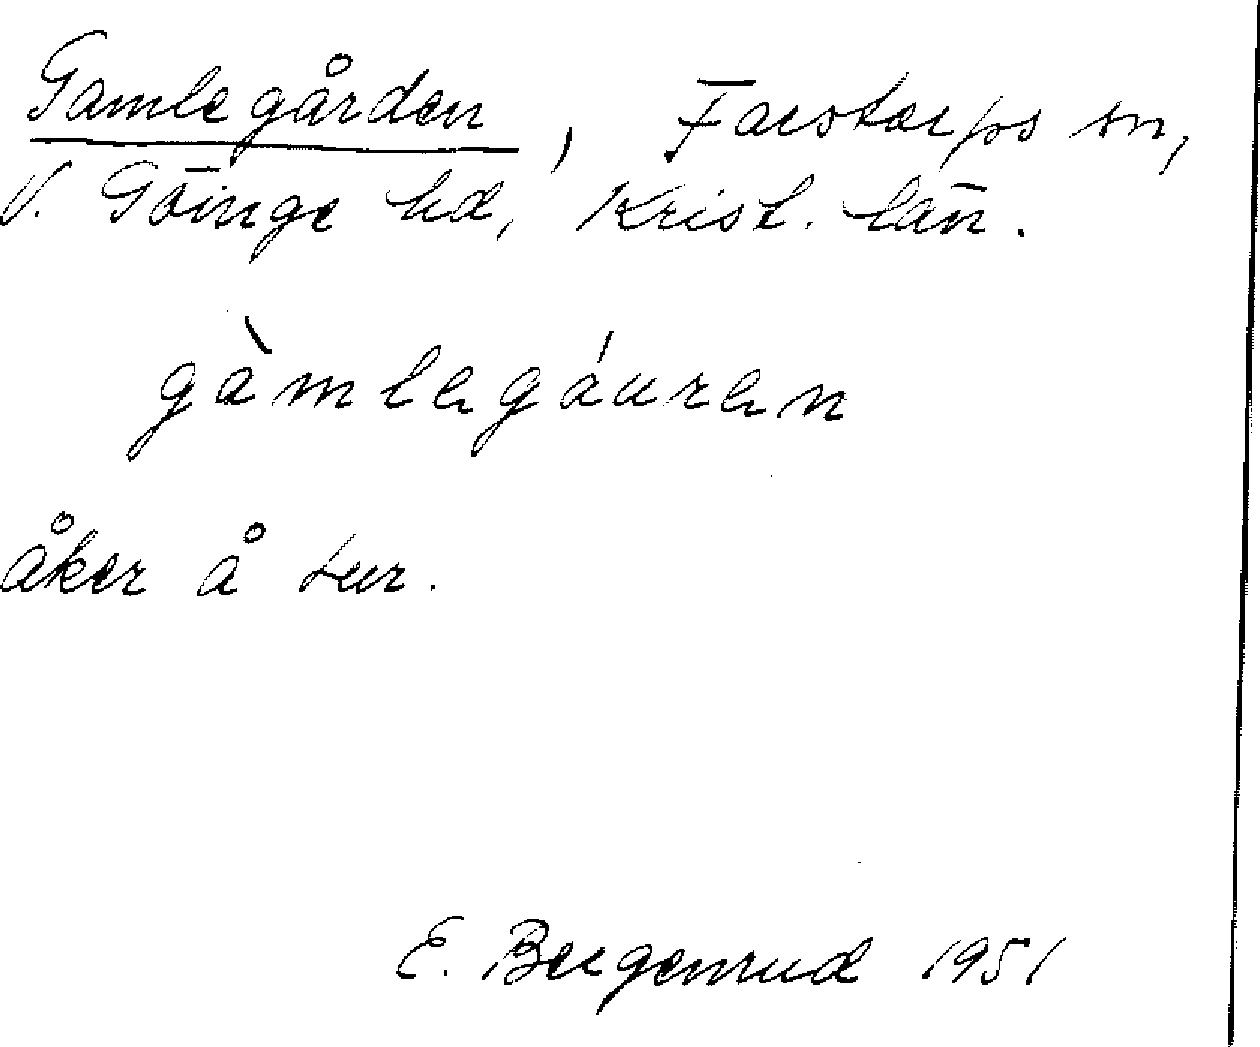 Gamlegården, Farstorps sn,
V. Göinge hd, Krist. län.
gàmlegáuren
åker å tur.
E. Bergenrud 1951